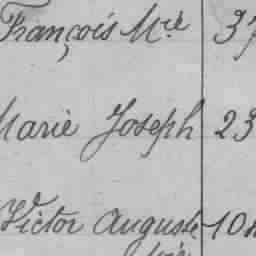 François Mie 37
Marie Joseph 23
Victor Auguste 10